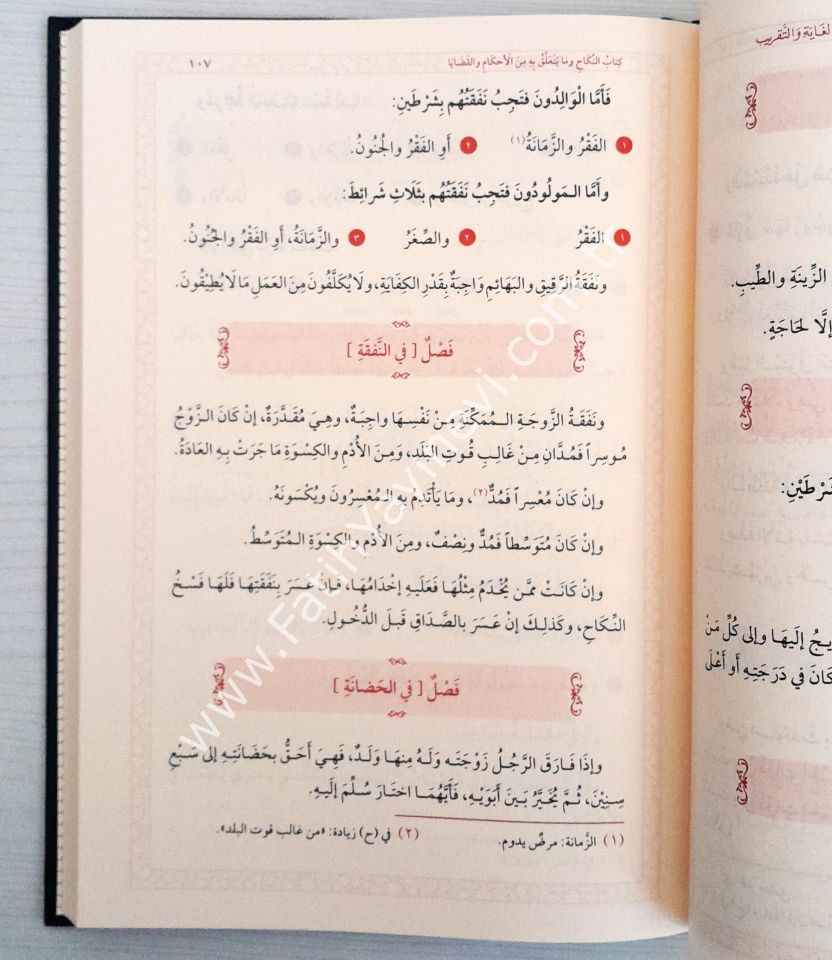 كِتَابُ النِّكَاحِ ومَا يَتَعَلَّقُ بِهِ مِنَ الأَحكَامِ والقَضَايَا
١٠٧
فَأَمَّا الْوَالِدُونَ فتَجِبُ نَفَقَتُهُم بِشَرطَينِ:
١ الفَقْرُ والزَّمَانَةُ(١) ٢ أَوِ الفَقْرُ والجُنُونُ.
وأَمَّا الـمَولُودُونَ فتَجِبُ نَفَقَتُهُم بثَلَاثِ شَرائِطَ:
١ الفَقْرُ ٢ والصِّغَرُ ٣ والزَّمَانَةُ، أَوِ الفَقْرُ والجُنُونُ.
ونَفَقَةُ الرَّقِيقِ والبَهَائِمِ وَاجِبَةٌ بِقَدْرِ الكِفَايَةِ، ولَا يُكَلَّفُونَ مِنَ العَمَلِ مَا لَا يُطِيْقُونَ.
فَصْلٌ [ في النَّفَقَةِ ]
ونَفَقَةُ الزَّوجَةِ الـمُمَكِّنَةِ مِنْ نَفْسِهَا واجِبَةٌ، وهِيَ مُقَدَّرَةٌ، إِنْ كَانَ الـزَّوْجُ
مُـوسِراً فَمُدَّانِ مِـنْ غَالِبِ قُوتِ البَلَدِ، ومِنَ الأُدْمِ والكِسْوَةِ مَا جَرَتْ بِهِ العَادَةُ.
وإِنْ كَانَ مُعْسِراً فَمُدٌّ(٢)، ومَا يَأْتَدِمُ بِهِ الـمُعْسِرُونَ ويُكْسَونَهُ.
وإِنْ كَانَ مُتَوَسِّطاً فَمُدٌّ ونِصْفٌ، ومِنَ الأُدْمِ والكِسْوَةِ الـمُتَوَسِّطُ.
وإِنْ كَانَـتْ ممَّـن يُخْدَمُ مِثْلُهَا فَعَلَيهِ إِخْدَامُهَا، فـإِنْ عَسَرَ بِنَفَقَتِهَا فَلَهَا فَسْـخُ
النِّكَاحِ، وكَذلِـكَ إِنْ عَسَرَ بالصَّدَاقِ قَبلَ الدُّخُولِ.
فَصْلٌ [ في الحَضانَةِ ]
وإِذَا فَارَقَ الرَّجُلُ زَوْجَتَـه ولَهُ مِنهَا وَلَدٌ، فَهِيَ أَحَقُّ بِحَضَانَتِهِ إِلى سَبْعِ
سِنِيْنَ، ثُمَّ يُخَيَّرُ بَينَ أَبَوَيْهِ، فَأَيَّهُمَا اختَارَ سُلِّمَ إِلَيهِ.
(١) الزَّمانة: مرضٌ يدوم. (٢) في (ح) زيادة: «من غالب قوت البلد».
الغَايَةِ والتَّقرِيبِ
الزِّينَةِ والطِّيبِ.
إِلَّا لحَاجَةٍ.
شَرْطَيْنِ:
إِلَيهَا وإلى كُلِّ مَنْ
كَانَ في دَرَجَتِهِ أَو أَعْلَى
www.FatihYayinevi.com.tr